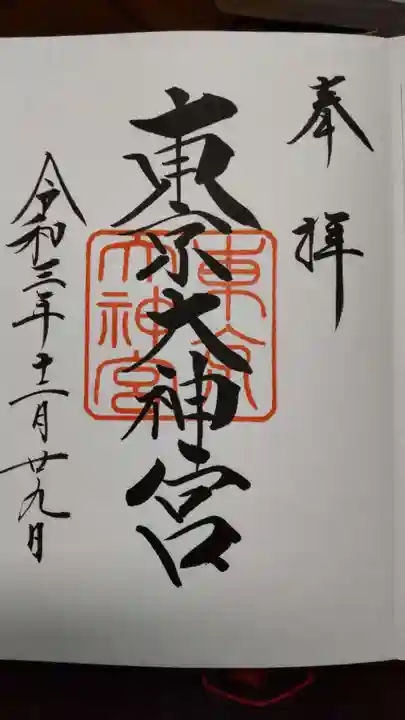 奉拝
東京大神宮
東京
大神宮
令和三年十一月廿九日